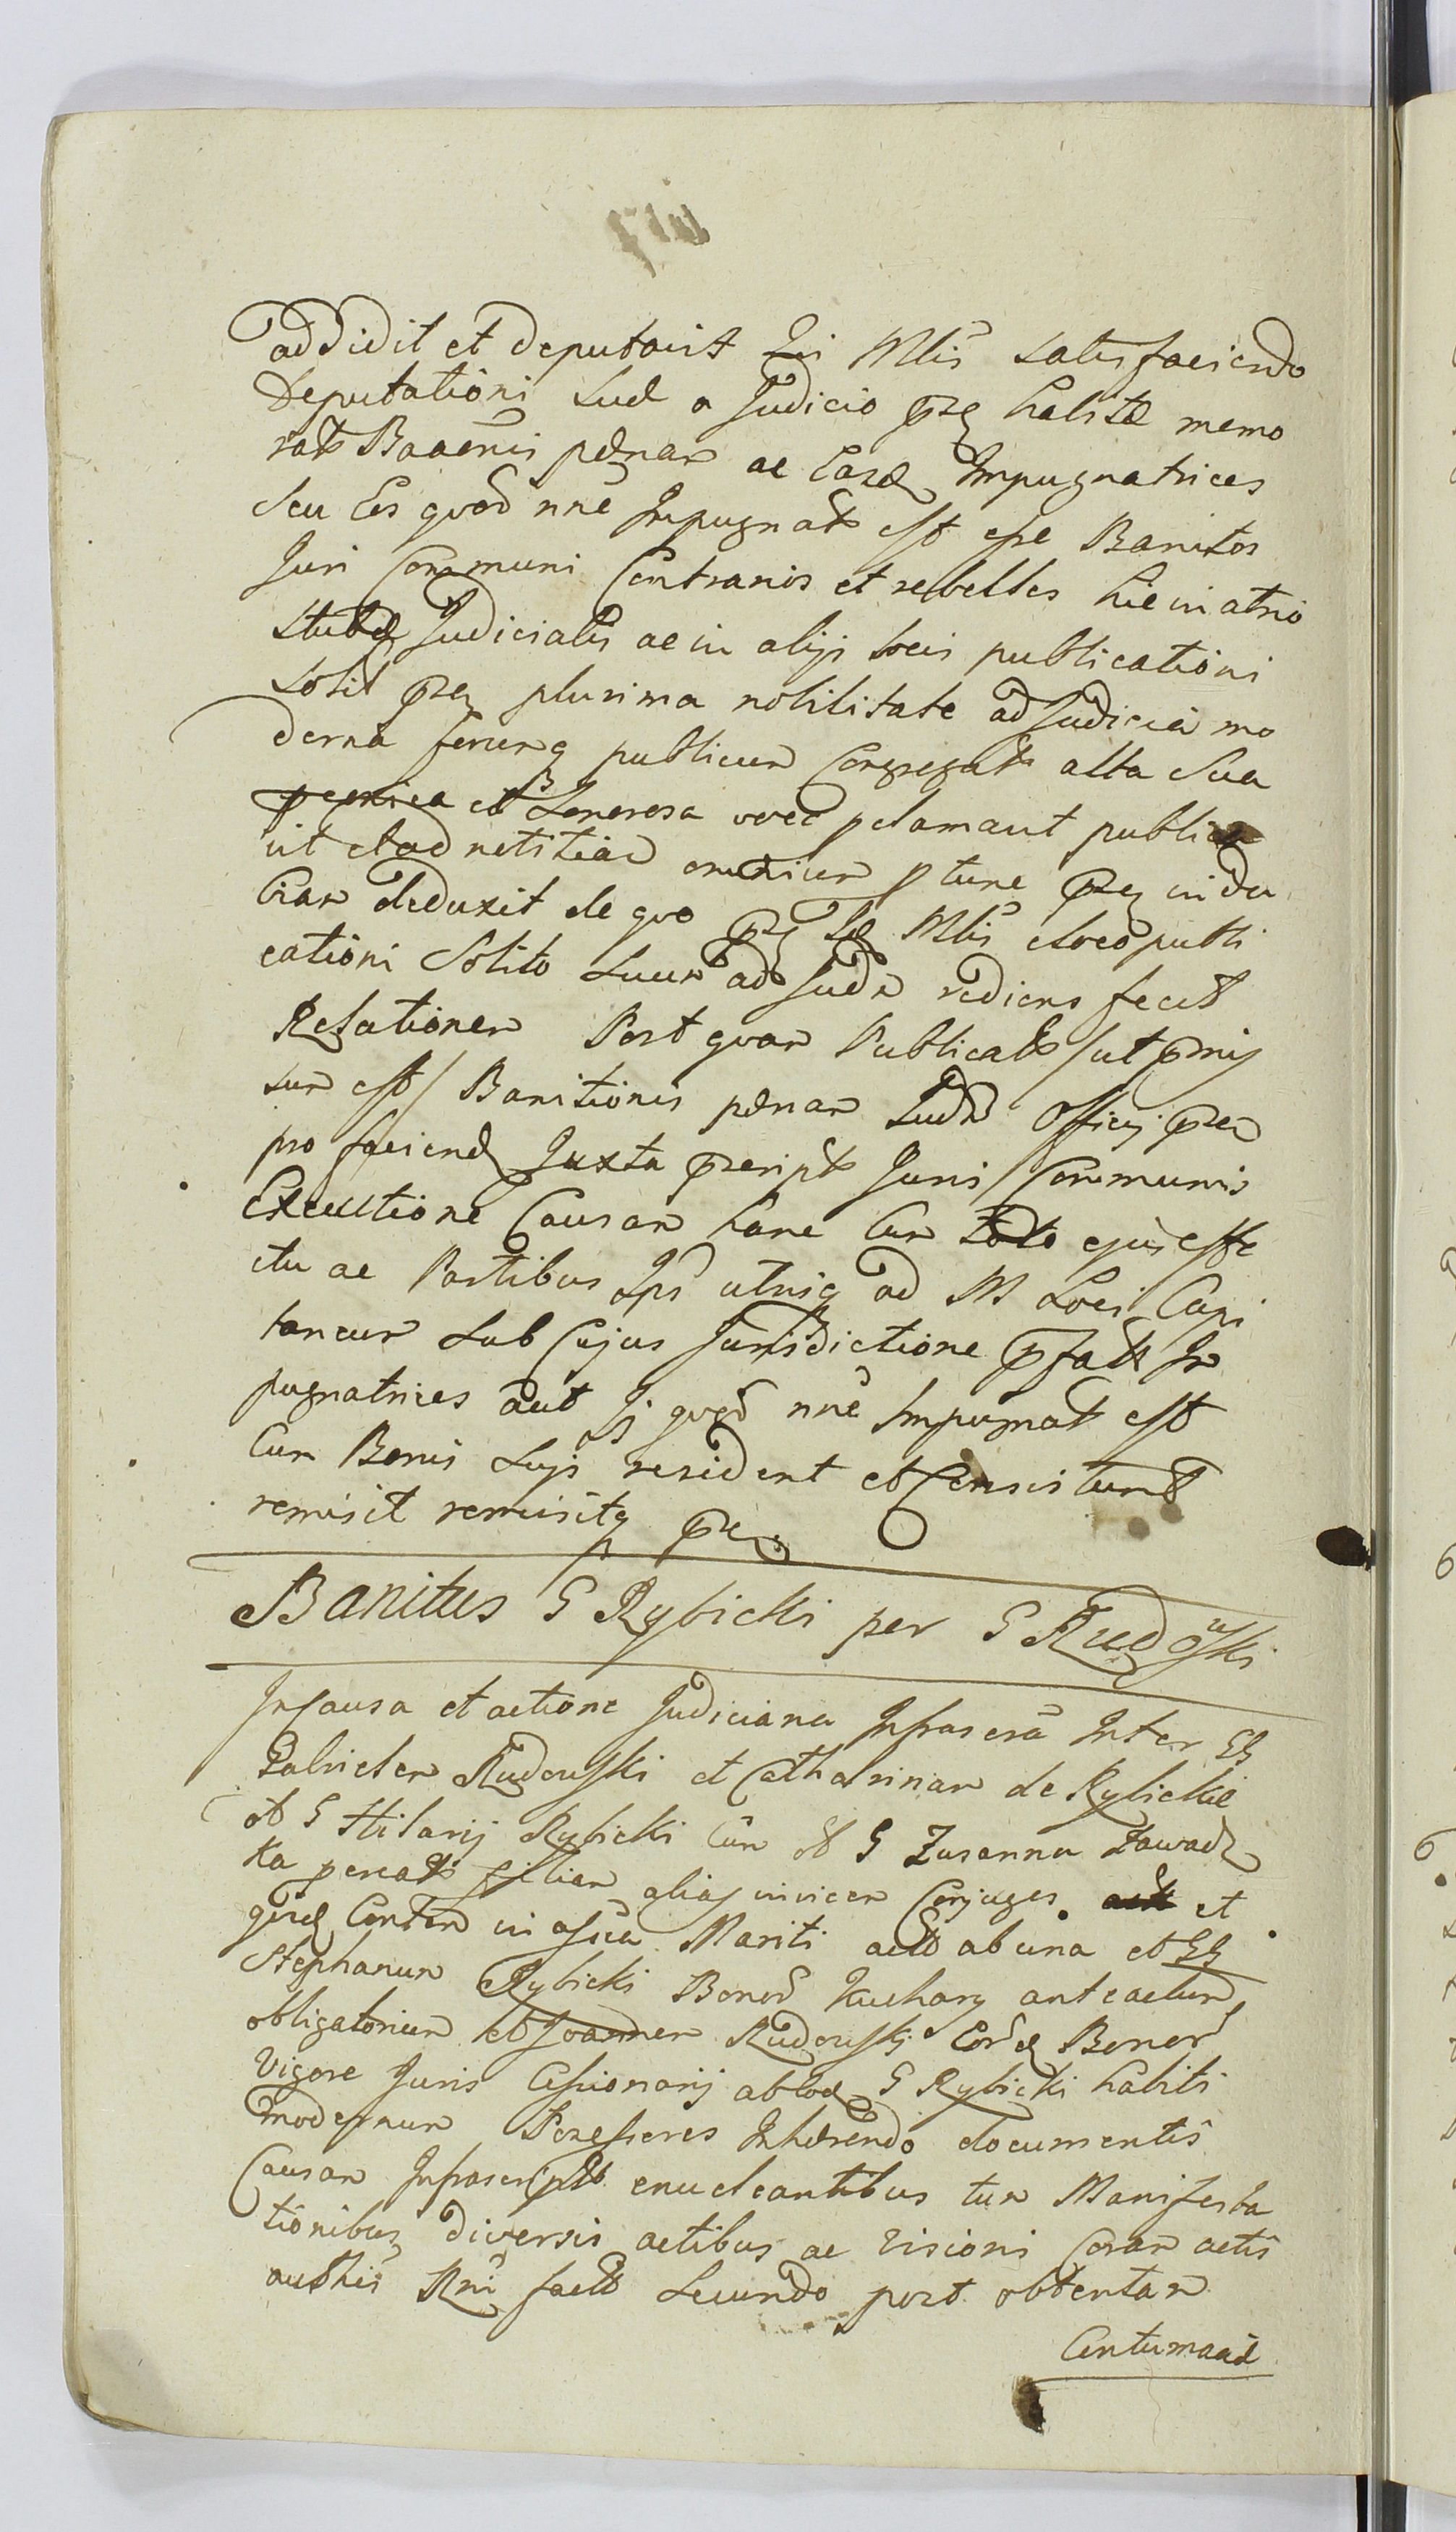 addidit et deputavit Qui Mlis satisfaciendo
Deputationi suæ a Judicio præ habitæ memo
rat Banenis pænam ac Easd Impugnatrices
seu Eos quod nne Impugnat est esse Banitos
Juri Communi Contrarios et rebelles hic in atrio
stubæ Judicialis ac in alijs locis publicationi
solit præ plurima nobilitate ad Judicia mo
derna ferenq publicum Congregat alta sua
et Generosa voce pclamavit public
vit et ad notitiam omnium p tunc præ in du
biam deduxit de quo præ Mlis eloco publi
cationi solito suum ad Judm rediens fecit
Relationem Post quam Publicat /ut pmis
sum est/ Banitionis pænam Judm Officij præ
pro faciend Juxta præript Juris Communis
Executione Causam hanc Cum toto ejus effe
ctu ac Partibus Ips utrisq ad M Loci Capi
taneum sub Cujus Jurisdictione pfatt Im
pugnatrices aut Ij quod nne Impugnat est
Cum Bonis suijs resident et Consistunt
remisit remisitq præ
Banitus G Rybicki per G Rudowski
In Causa et actione Judiciaria Infrascra Inter GG
Gabrielem Rudowski et Catharinam de Rybickie
ot G Hilarij Rybicki Cum ot G Zusanna Zawadz
ka pcreat filiam alias invicem Conjuges et
Contm in assia Mariti actt ab una et GG
Stephanum Rybicki Bonor Kuchary anteactum
obligatorium et Joannem Rudowski Eord Bonor
Vigore Juris Cessionarij ab eod G Rybicki habiti
modernum Possessores Inhærendo documentis
Causam Infrascript enucleantibus tum Manifesta
tionibus diversis actibus ac Visioni Coram actis
authis Rni factt secundo post obtentam
Contumaciã